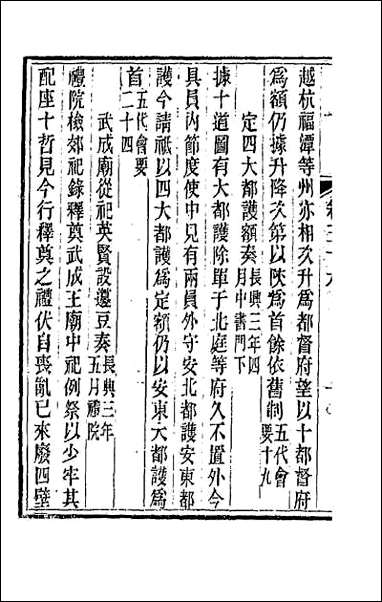 越杭福潭等州亦相次升爲都督府望以十都督府
爲額仍據升降次第以陝爲首餘依舊制五代會要十九
定四大都護額奏長興三年四月中書門下
據十道圖有大都護除單于北庭等府久不置外今
具員內節度使中見有兩員外守安北都護安東都
護今請祗以四大都護爲定額仍以安東大都護爲
首五代會要二十四
武成廟從祀英賢設籩豆奏長興三年五月禮院
禮院檢郊祀錄釋奠武成王廟中祀例祭以少牢其
配座十哲見今行釋奠之禮伏自喪亂已來廢四壁